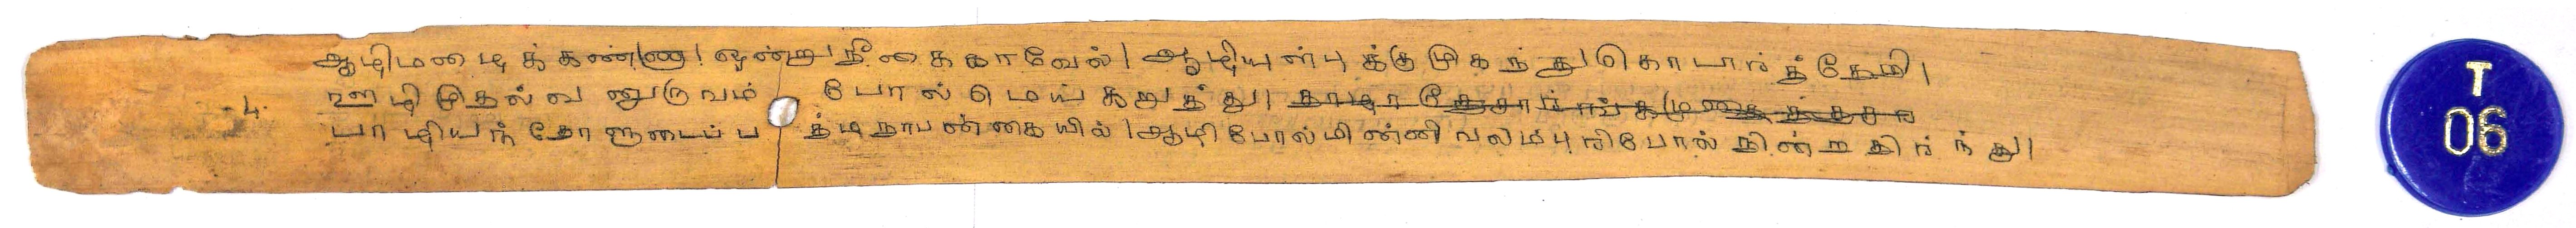 ஆழிமழைக்கண்ணா। ஒன்றுநீகைகரவேல்। ஆழியுள்புக்குமுகந்துகொடார்த்தேறி।
4. ஊழிமுதல்வனுருவம் போல்மெய்கறுத்து।
பாழியந்தோளுடைப்பத்மநாபன்கையில்।ஆழிபோல்மின்னிவலம்புரிபோல்நின்றதிர்ந்து।
T
06